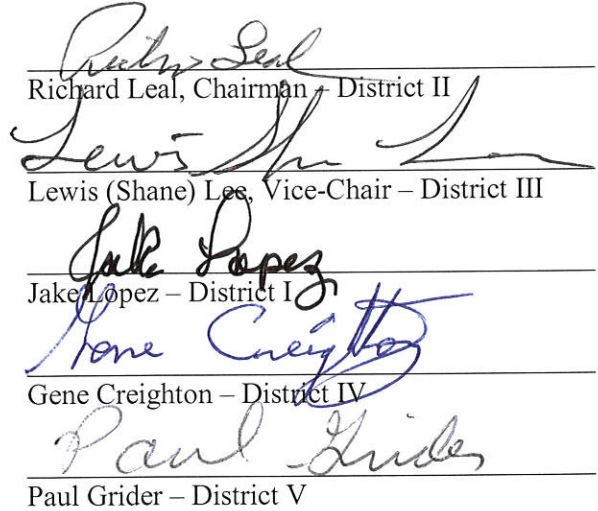 Richard Leal
Richard Leal, Chairman – District II
Lewis Shane Lee
Lewis (Shane) Lee, Vice-Chair – District III
Jake Lopez
Jake Lopez – District I
Gene Creighton
Gene Creighton – District IV
Paul Grider
Paul Grider – District V